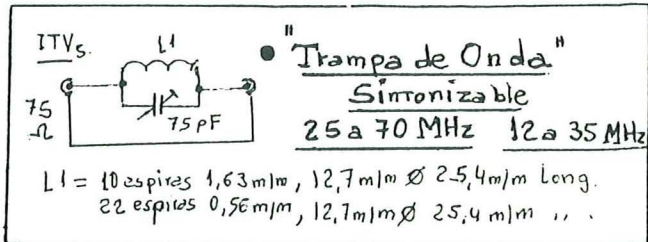 ITVs.
L1
75 Ω
75 pF
"Trampa de Onda"
Sintonizable
25 a 70 MHz 12 a 35 MHz
L1 = 10 espiras 1,63 m/m, 12,7 m/m Ø 25,4 m/m Long.
22 espiras 0,56 m/m, 12,7 m/m Ø 25,4 m/m ,, .